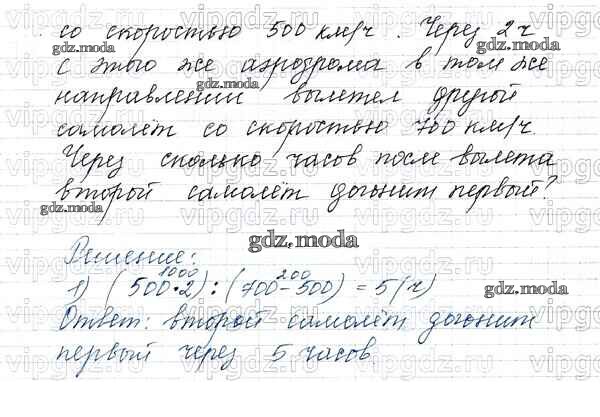 со скоростью 500 км/ч. Через 2 ч
с этого же аэродрома в том же
направлении вылетел другой
самолёт со скоростью 700 км/ч.
Через сколько часов после вылета
второй самолёт догонит первый?
gdz.moda
Решение:
1000 200
1) (500·2):(700-500) = 5 (ч)
Ответ: второй самолёт догонит
первый через 5 часов.